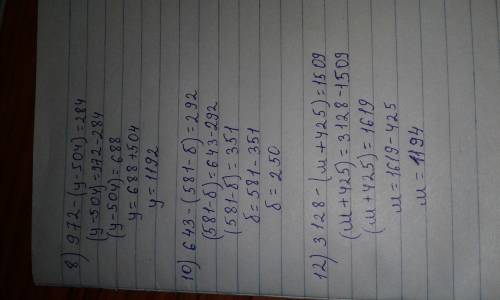 8) 972-(y-504)=284
(y-504)=972-284
(y-504)=688
y=688+504
y=1192
10) 643-(581-б)=292
(581-б)=643-292
(581-б)=351
б=581-351
б=250
12) 3128-(м+425)=1509
(м+425)=3128-1509
(м+425)=1619
м=1619-425
м=1194